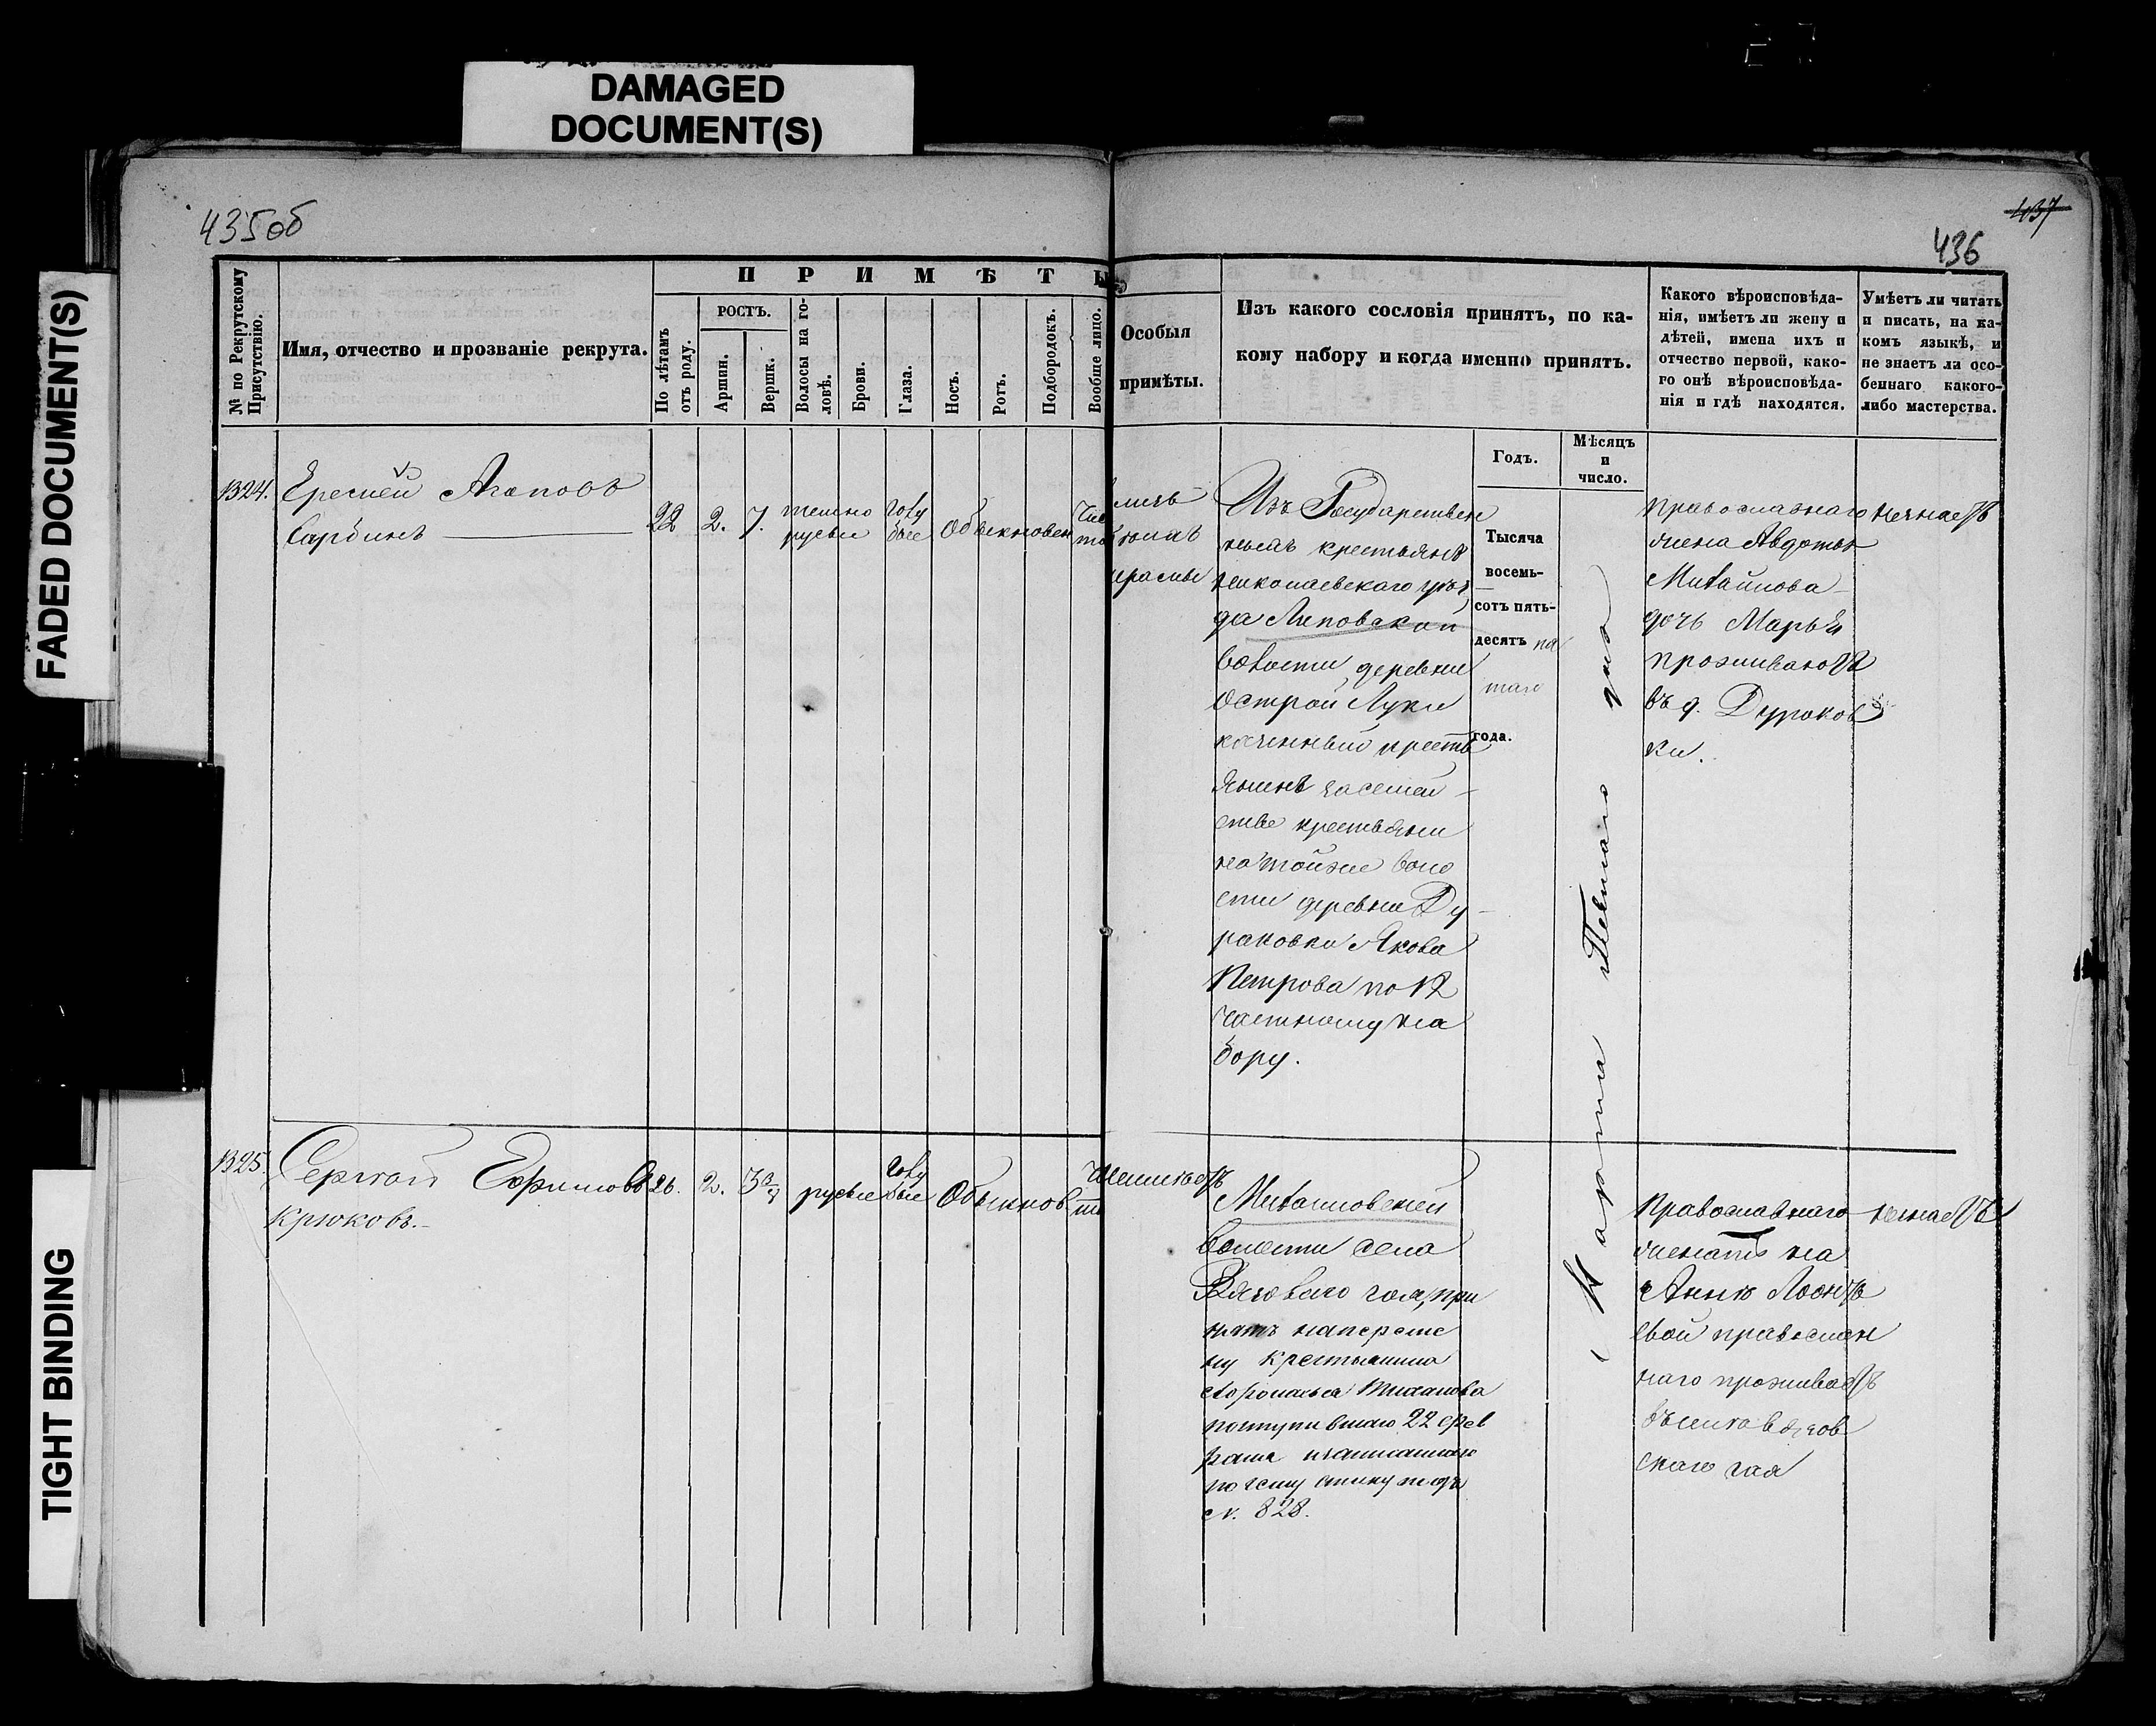 DAMAGED
DOCUMENT(S)
FADED DOCUMENT(S)
TIGHT BINDING
435об
437
436
№ по Рекрутскому
Присутствію.
Имя, отчество и прозваніе рекрута.
ПРИМѢТЫ
По лѣтамъ
отъ роду.
РОСТЪ.
Аршин.
Вершк.
Волосы на го-
ловѣ.
Брови.
Глаза.
Носъ.
Ротъ.
Подбородокъ.
Вообще лицо.
Особыя
примѣты.
Изъ какого сословія принятъ, по ка-
кому набору и когда именно принятъ.
Какого вѣроисповѣда-
нія, имѣетъ ли жену и
дѣтей, имена ихъ и
отчество первой, како-
го онѣ вѣроисповѣда-
нія и гдѣ находятся.
Умѣетъ ли читать
и писать, на ка-
комъ языкѣ, и
не знаетъ ли осо-
беннаго какого-
либо мастерства.
Годъ.
Мѣсяцъ
и
число.
1324.
Еремей Агаповъ
Сарбинъ
22
2.
7.
темно
русые
голу
бые
Обыкновен
чис
то
Изъ Государствен
ныхъ крестьянъ
Николаевскаго уѣз
да Липовской
волости деревни
Острой Луки
крестья
янинъ за семей
стве крестьяни
на тойже воло
сти деревни Ду
раковки Якова
Петрова по 12
частному на
бору.
Тысяча
восемь-
сотъ пять-
десятъ пя
таго
года.
Марта Перваго дня
Православнаго
жена Авдотья
Михайлова
дочь Марья
проживаютъ
въ д. Дураков
ки.
незнаетъ
1325.
Сергей Ефимовъ
Крюковъ.
26.
2.
3 3/4
русые
голу
бые
Обыкнов
Михайловской
волости села
Вязоваго гая, при
нятъ на переме
ну крестьянина
поступившаго 22 фев
раля и записаннаго
по сему списку подъ
N. 828.
Православнаго
женатъ на
Анне Леонть
евой православ
наго проживаетъ
въ селе Вязов
скаго гая
незнаетъ